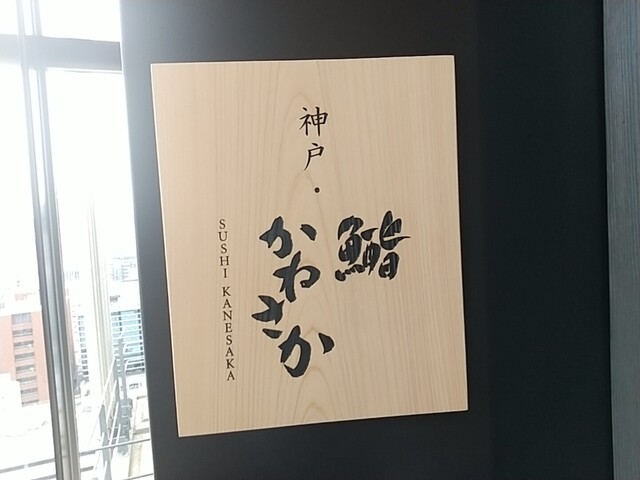 神戸・
鮨
かねさか
SUSHI KANESAKA